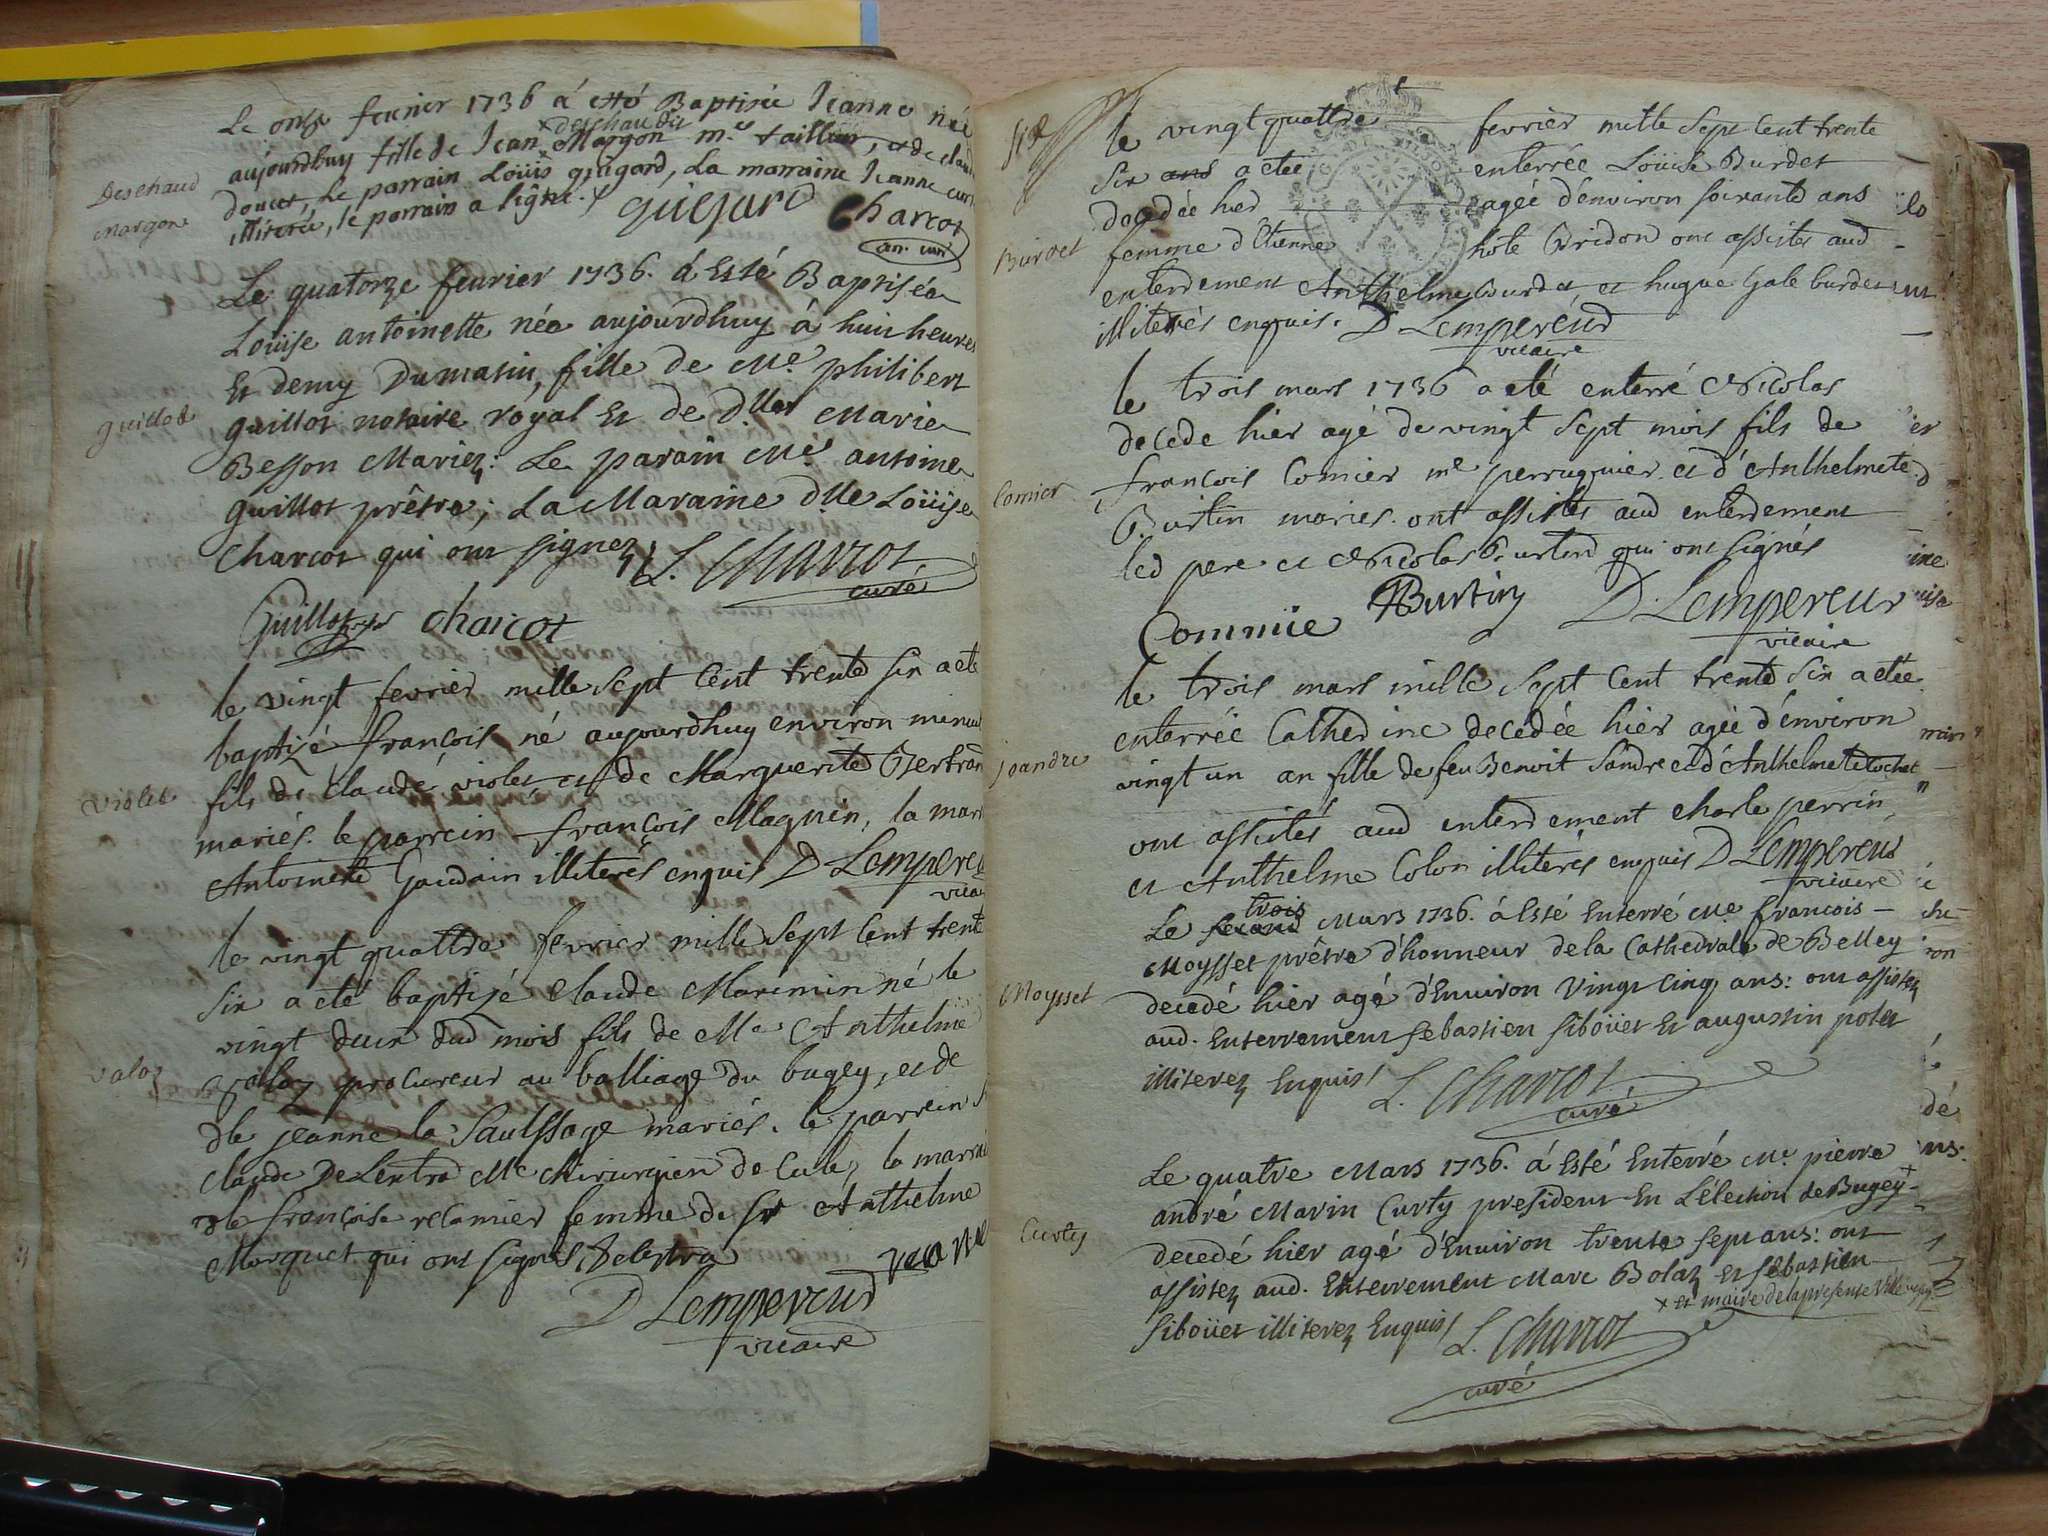 Le onze fevrier 1736 á etté Baptisée Jeanne née
aujourdhuy fille de Jean Margon me tailleur, et de
x deschaud dit
Deschaud
Margon
douces, Le parrain Loüis guigard, La marraine Jeanne
illiterée, le parrain a signé.
guigard Charcot
Le quatorze feurier 1736. á Esté Baptisée
Loüise antoinette née aujourdhuy á huit heures
Et demy Dumatin, fille de Me. philibert
guillot
guillot notaire royal Et de dlle Marie
Besson Mariez: Le parain Mre antoine
guillot prêtre; La Maraine dlle Loüise
Charcot qui ont signez,
L. Charcot
curé
Guillot charcot
le vingt fevrier mille sept cent trente six a eté
baptizé françois né aujourdhuy environ minuit
violet
fils de claude violet et de Marguerite Bertrand
mariés. le parrein françois Magnin, la mar
Antoinette Gaudain illiterés enquis D Lempereu
vicai
le vingt quattre fevrier mille sept cent trente
six a eté baptizé claude Maximin né le
vingt deux dud mois fils de Me Anthelme
valaz
valaz procureur au balliage du bugey, et de
dlle jeanne la Saulssage mariés. le parrein
claude Delextra Me chirurgien de Cule, la marrai
dlle françoise recamier femme de sr Anthelme
Marquet qui ont signés Delextra
D Lempereur
vicaire
le vingt quattre fevrier mille sept cent trente
six ans a eteé enterrée Loüise Burdet
decedée hier agée d'environ soixante ans
Burdet
femme d'Etienne hoté Bridon ont assistes aud
enterrement Anthelme Burdet et hugue Gale burdet
illiterés enquis. D Lempereur
vicaire
le trois mars 1736 a eté enterré Nicolas
decede hier agé de vingt sept mois fils de
Comier
françois Comier me perruquier et d'Anthelmete
Burtin mariés. ont assistes aud enterrement
led pere et Nicolas Burtin qui ont signés
Commie Burtin D. Lempereur
vicaire
le trois mars mille sept cent trente six a etée
enterrée Catherine decedée hier agée d'environ
jandre
vingt un an fille de feu Benoit Jandre et d'Anthelmete
ont assistés aud enterrement charle perrin
et Anthelme Colon illiterés enquis D Lempereur
vicaire
trois
Le second Mars 1736. á Esté Enterré Me. françois
Moysset prêtre d'honneur de la Cathedrale de Belley
Moysset
decedé hier agé d'Enuiron Vingt Cinq ans: ont assistez
aud. Enterrement Sebastien Siboüet Et augustin polet
illiterez Enquis L. Charcot
curé
Le quatre Mars 1736. á Esté Enterré Me. pierre
andré Marin Curty president En L'élection de Bugey x
Curty
decedé hier agé d'Enuiron trente sept ans: ont
assistez aud. Enterrement Marc Bolaz Et sebastien
x et maire de la presente Ville
Siboüet illiterez Enquis L. Charcot
curé